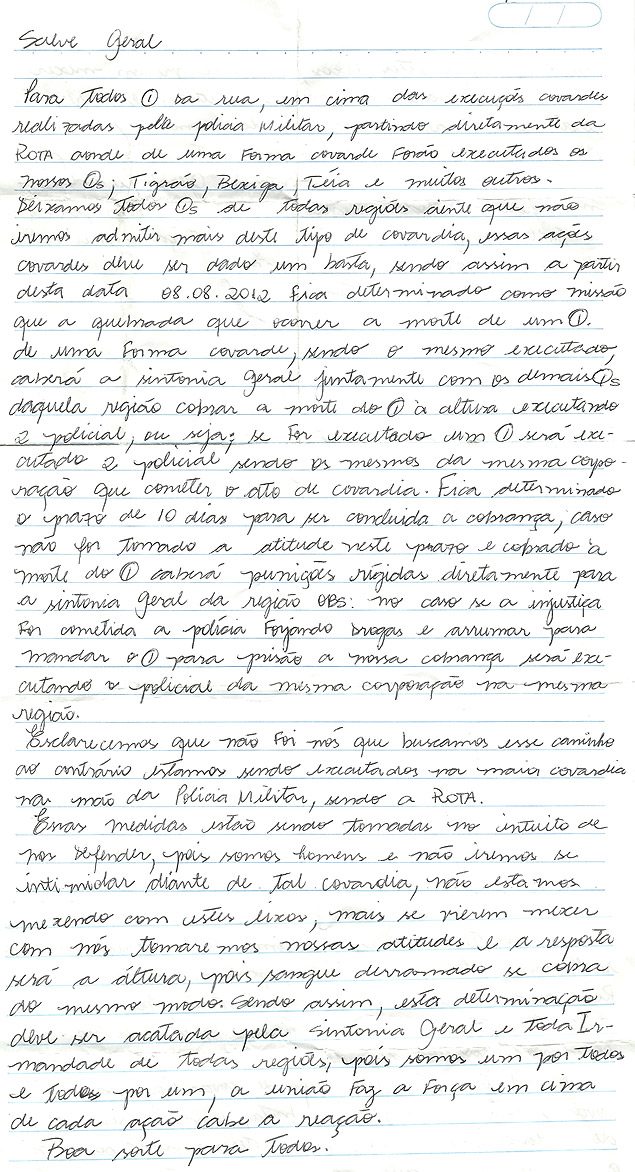 / /
Salve Geral
Para todos ① da rua, em cima das execuções covardes
realizadas pelle policia Militar, partindo diretamente da
ROTA aonde de uma Forma covarde Forão executados os
nossos ①s; Tigrão, Bexiga, Téia e muitos outros.
Deixamos todos ①s de todas regiões ciente que não
iremos admitir mais deste tipo de covardia, essas ações
covardes deve ser dado um basta, sendo assim a partir
desta data 08.08.2012 Fica determinado como missão
que a quebrada que ocorrer a morte de um ①.
de uma Forma covarde, sendo o mesmo executado,
caberá a sintonia Geral juntamente com os demais ①s
daquela região cobrar a morte do ① à altura executando
2 policial, ou seja; se For executado um ① será exe-
cutado 2 policial sendo os mesmos da mesma corpo-
ração que cometer o ato de covardia. Fica determinado
o prazo de 10 dias para ser concluida a cobrança, caso
não for tomado a atitude neste prazo e cobrado à
morte do ① caberá punições rígidas diretamente para
a sintonia Geral da região OBS: no caso se a injustiça
For cometida a polícia Forjando drogas e arrumar para
mandar o ① para prisão a nossa cobrança será exe-
cutando o policial da mesma corporação na mesma
região.
Esclarecemos que não Foi nós que buscamos esse caminho
ao contrário estamos sendo executados na maior covardia
na mão da Polícia Militar, sendo a ROTA.
Essas medidas estão sendo tomadas no intuito de
nos deFender, pois somos homens e não iremos se
intimidar diante de tal covardia, não estamos
mexendo com estes lixos, mais se vierem mexer
com nós tomaremos nossas atitudes e a resposta
será a altura, pois sangue derramado se cobra
do mesmo modo. Sendo assim, esta determinação
deve ser acatada pela Sintonia Geral e toda Ir-
mandade de todas regiões, pois somos um por todos
e todos por um, a união Faz a Força em cima
de cada ação cabe a reação.
Boa sorte para Todos.